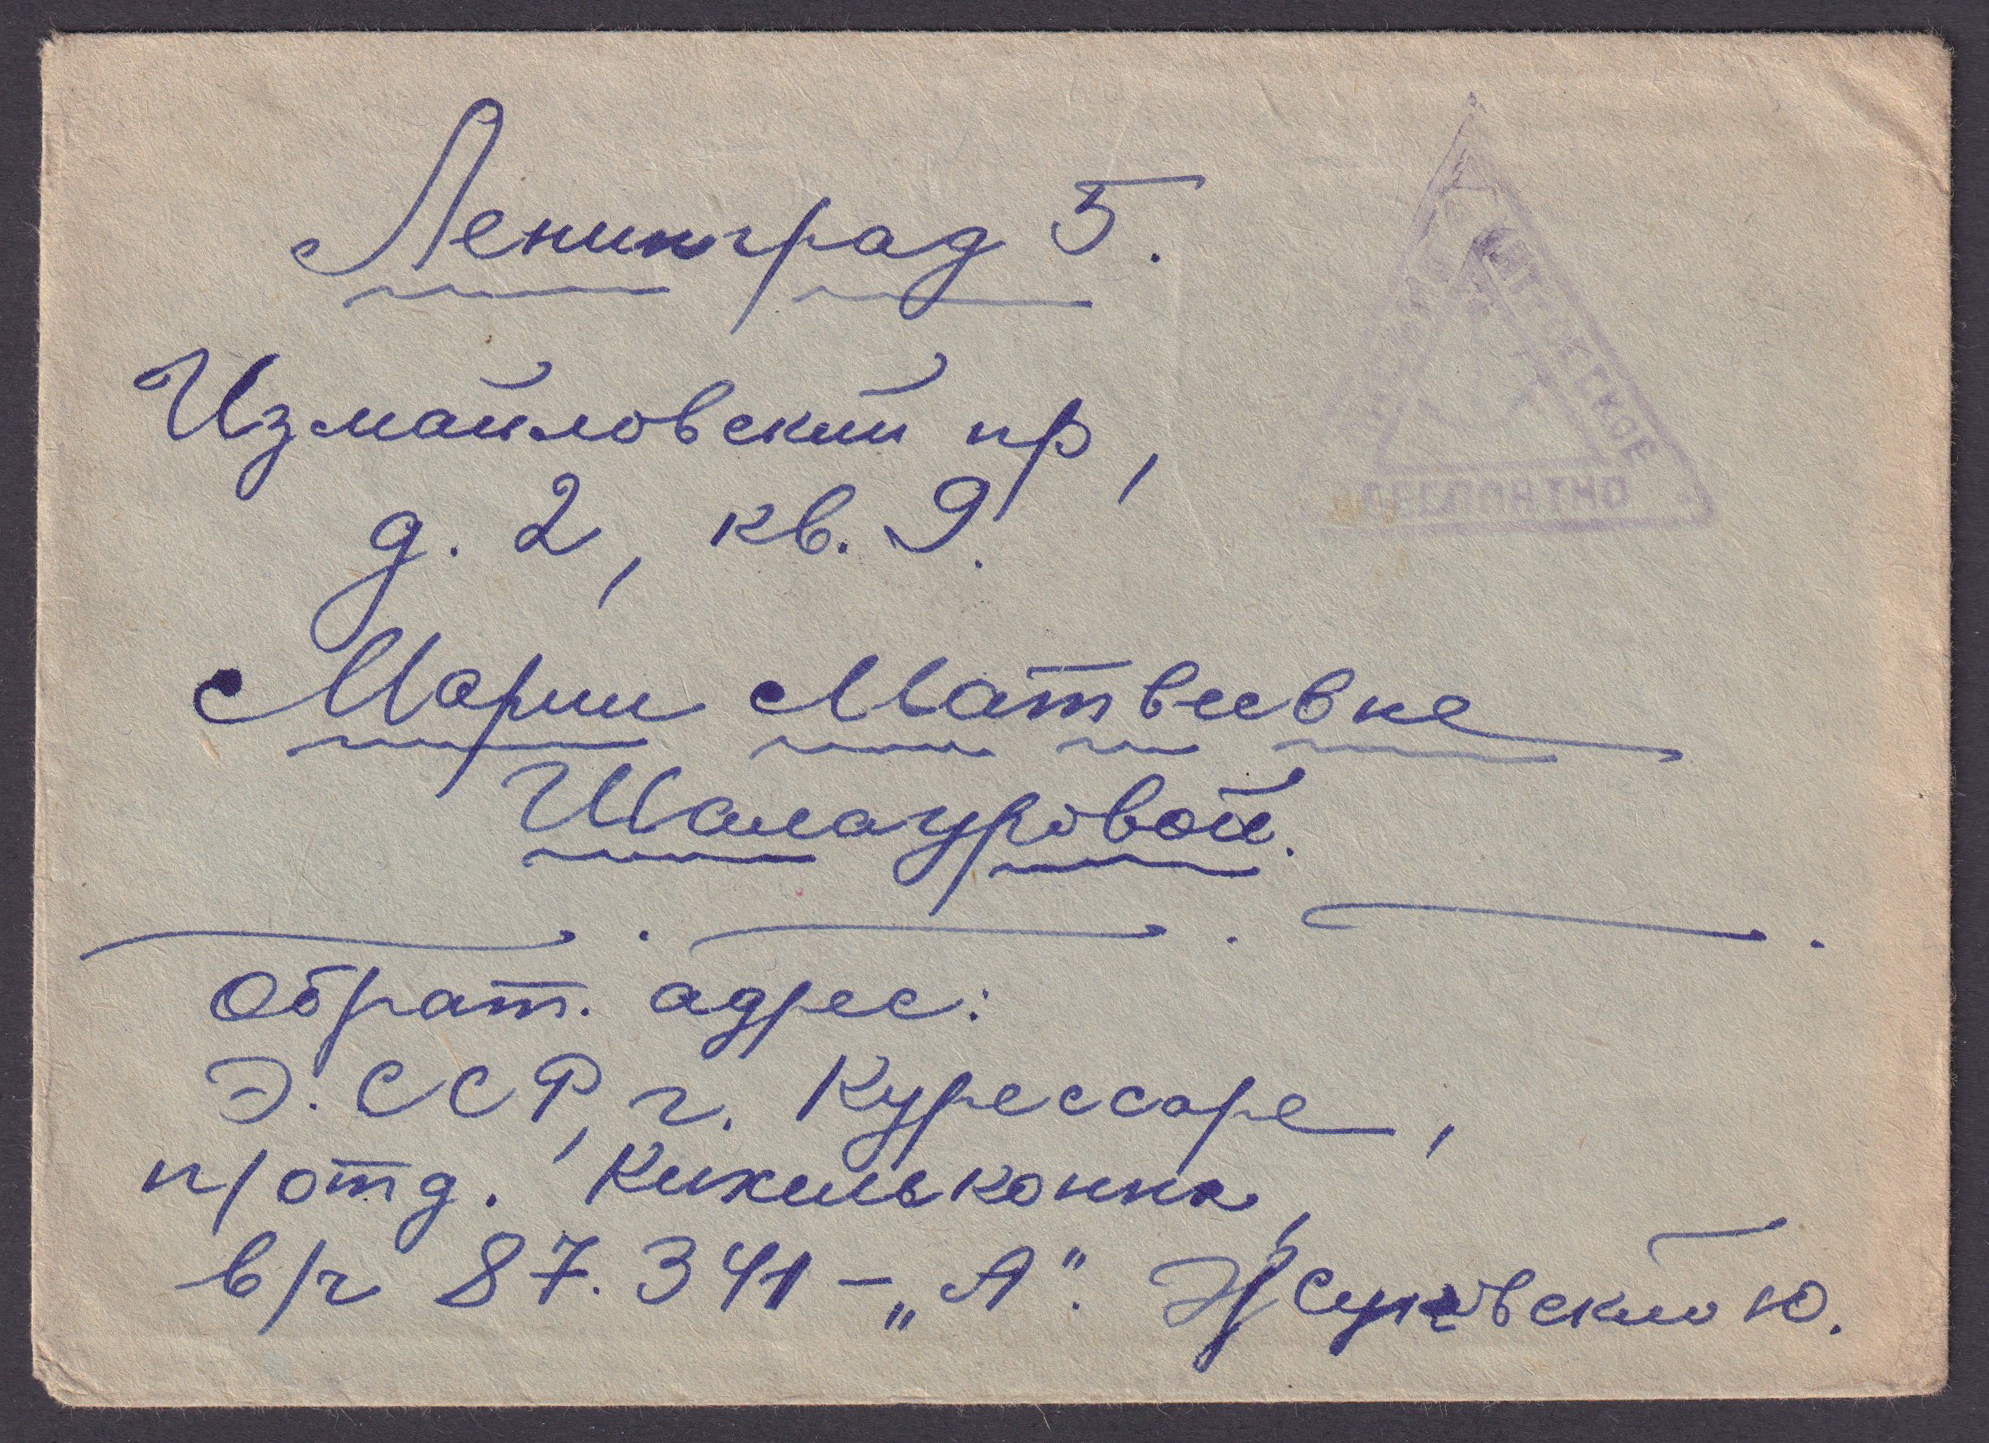 Ленинград 5.
Измайловский пр,
д. 2, кв. 9.
Марии Матвеевне
Шалауровой.
Обрат. адрес:
Э. ССР, г. Курессаре,
п/отд. Кихельконна,
в/ч 87.341 – „А".
Ю.
БЕСПЛАТНО